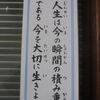 人生は今の瞬間の積み重
である今を大切に生きよ